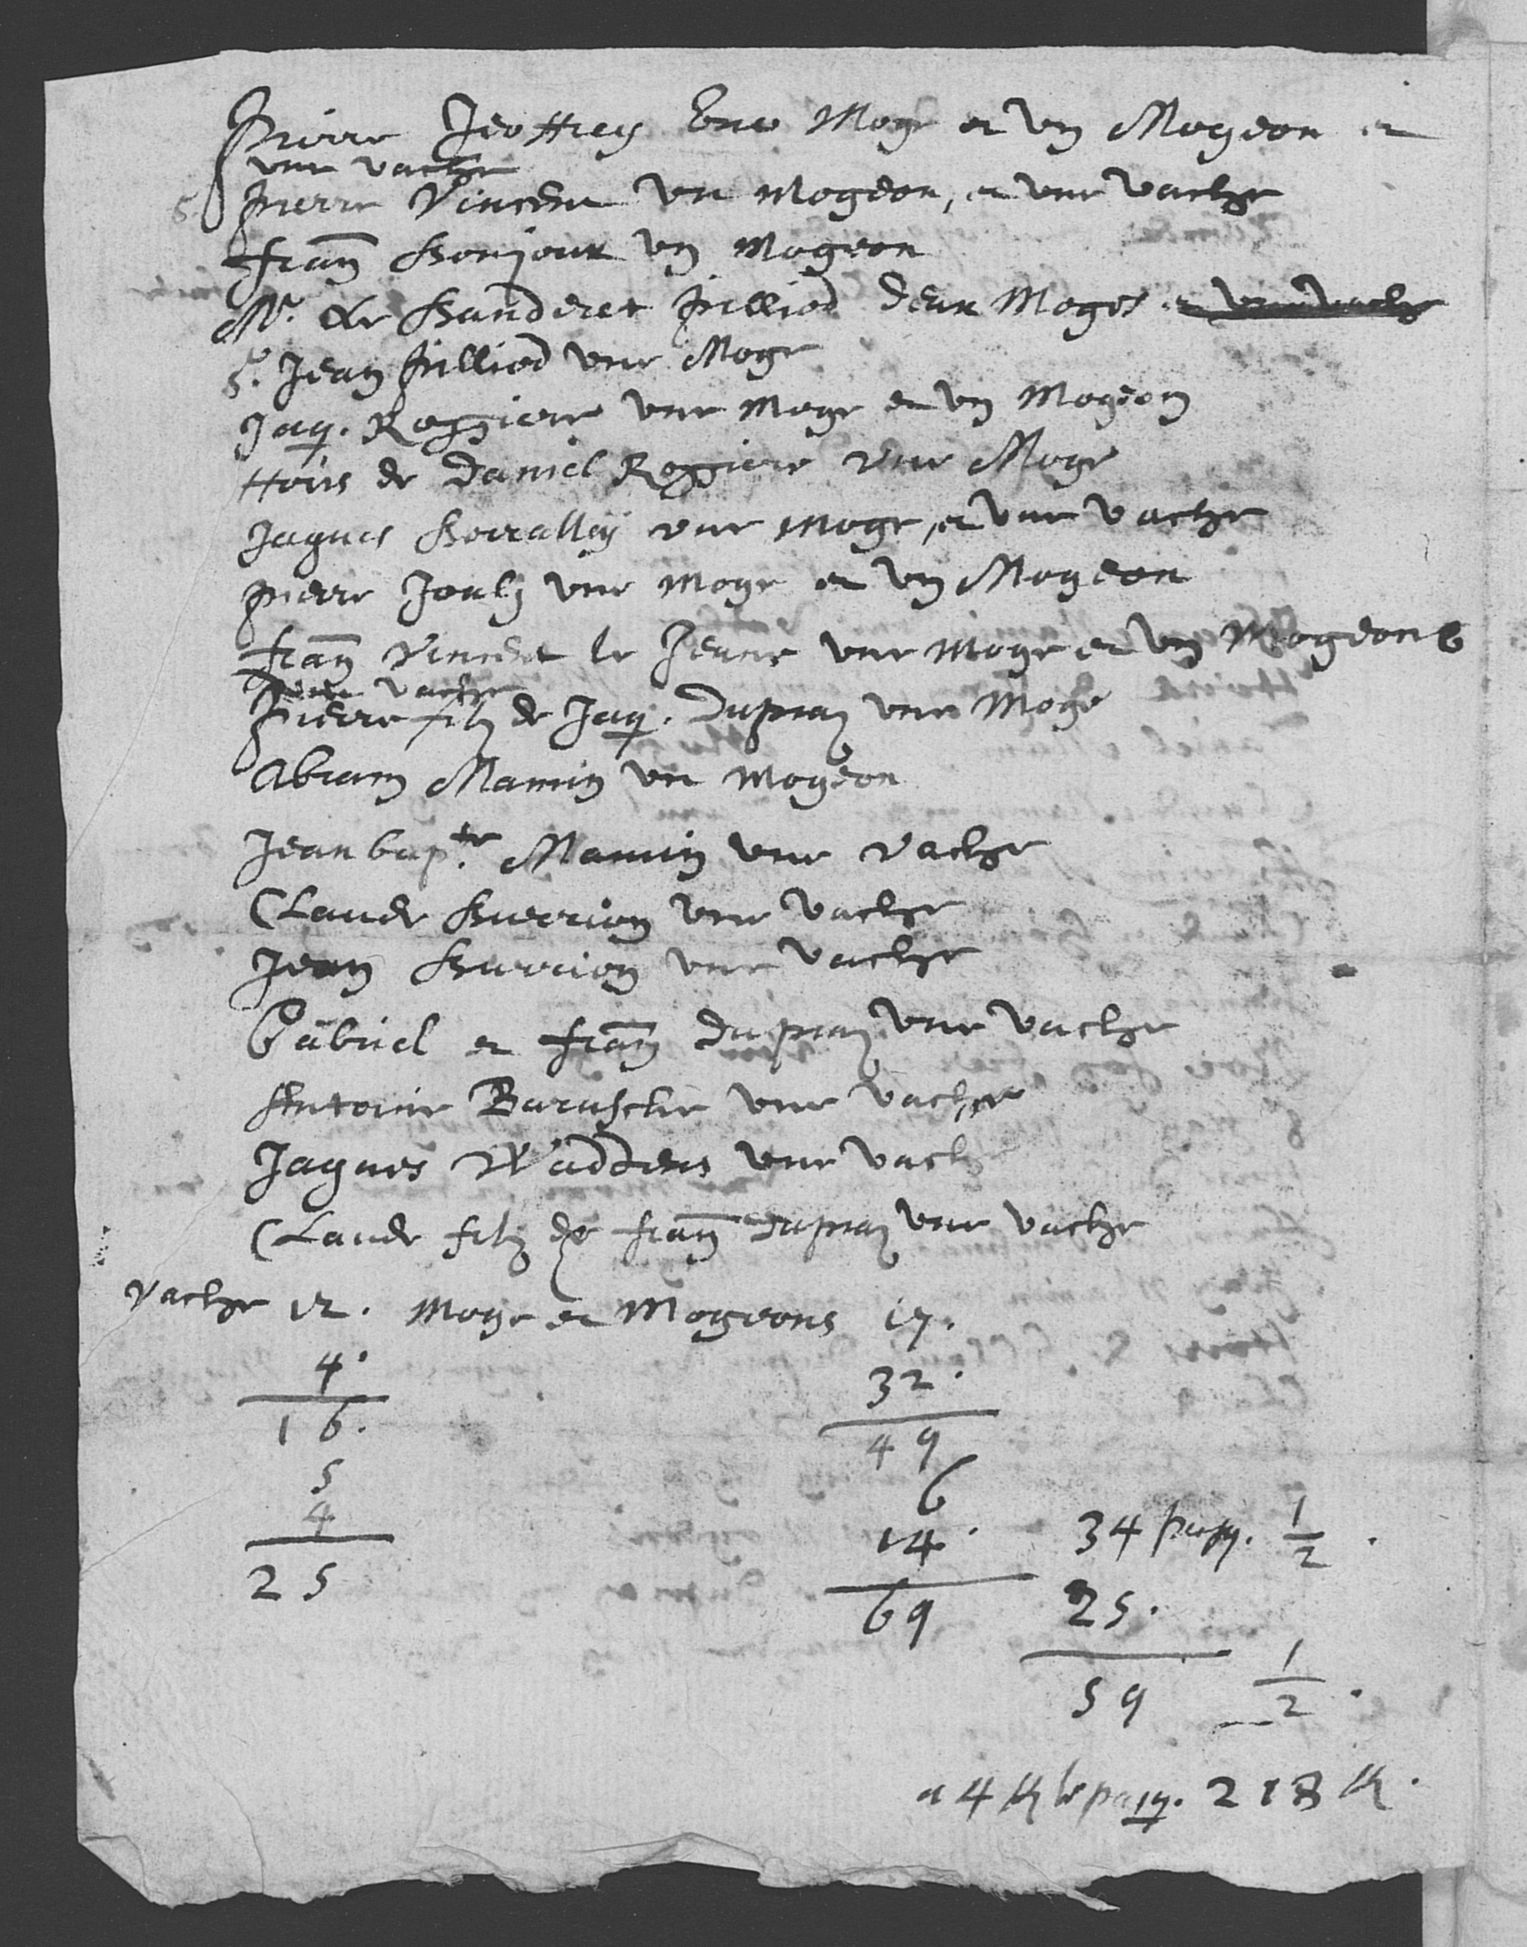 Pierre Jeoffrey Une Moge et un Mogeon et
une vache
Pierre Vincent un Mogeon, et une vache
fran Bonjour un Mogeon
Mr. de Banderet Pilliod deux Moges et une vache
Sr. Jean Pilliod une Moge
Jaq. Roggiere une Moge et un Mogeon
Hoirs de Daniel Roggiere une Moge
Jaques Borralley une Moge, et une vache
Pierre Joulz une Moge et un Mogeon
fran Vincent le Jeune une Moge et un Mogeon &
une vache
Pierre filz de Jaq. Dupraz une Moge
Abram Mamin un Mogeon
Jean bap.te Mamin une vache
Claude Burrion une vache
Jean Burrion une vache
Gabriel et fran Dupraz une vache
Antoine Barasche une vache
Jaques Waddens une vache
Claude filz de fran Dupraz une vache
Vache 12. Moge et Mogeons 17.
4.
32.
16.
49
5
6
4
14.
34 pasq. 1/2.
25
69
25.
59 1/2.
a 4 le pasq. 218